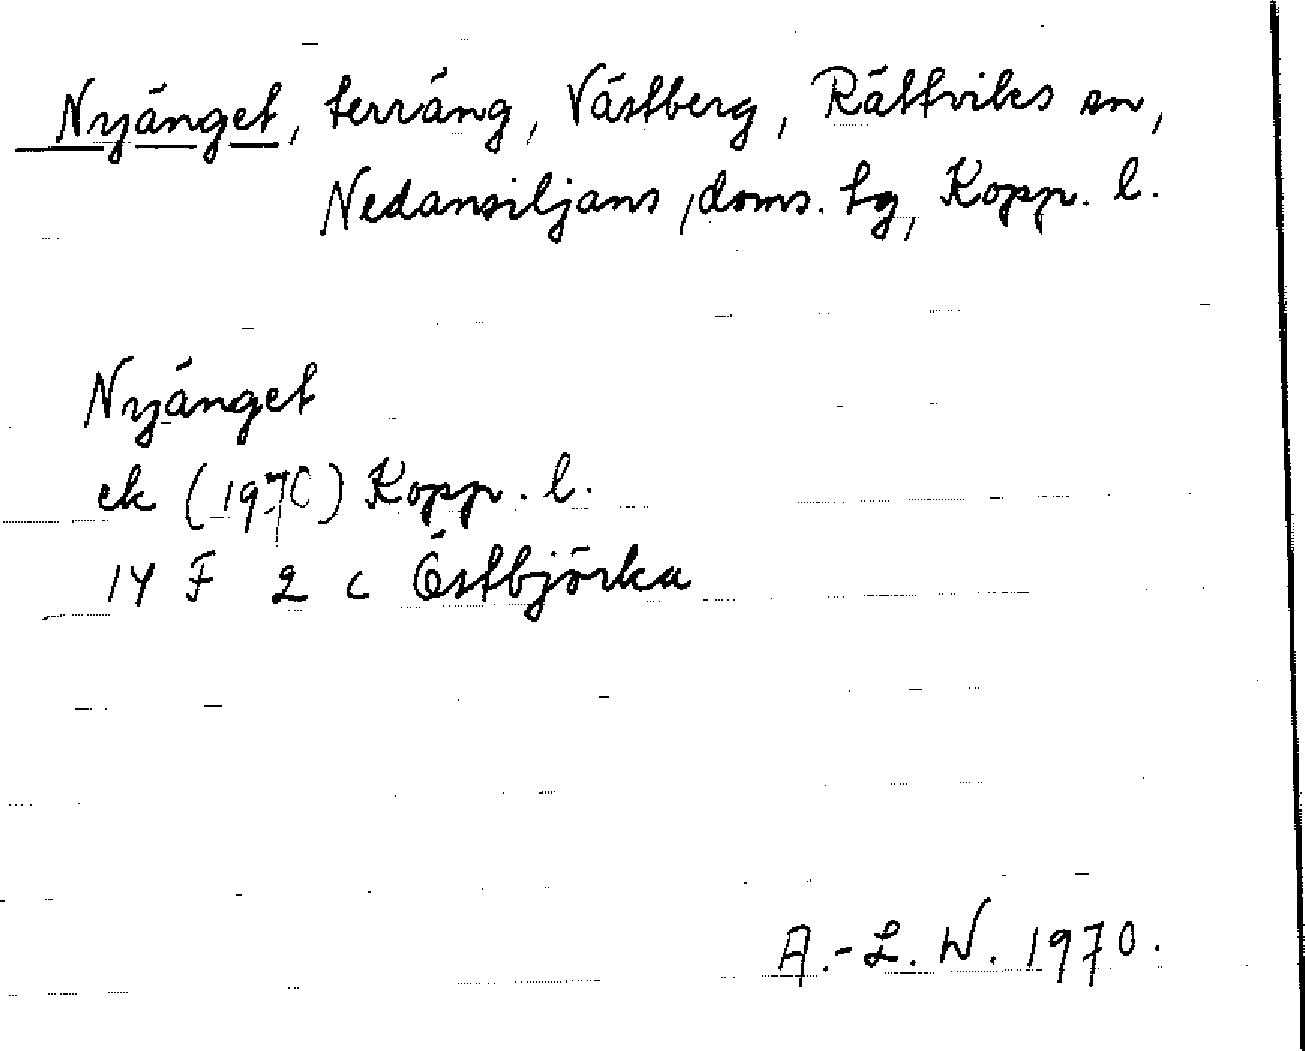 Nyänget, terräng, Västberg, Rättviks sn,
Nedansiljans, doms. tg, Kopp. l.
Nyänget
ek (1970) Kopp. l.
14 F 2 c Östbjörka
A.-L. W. 1970.